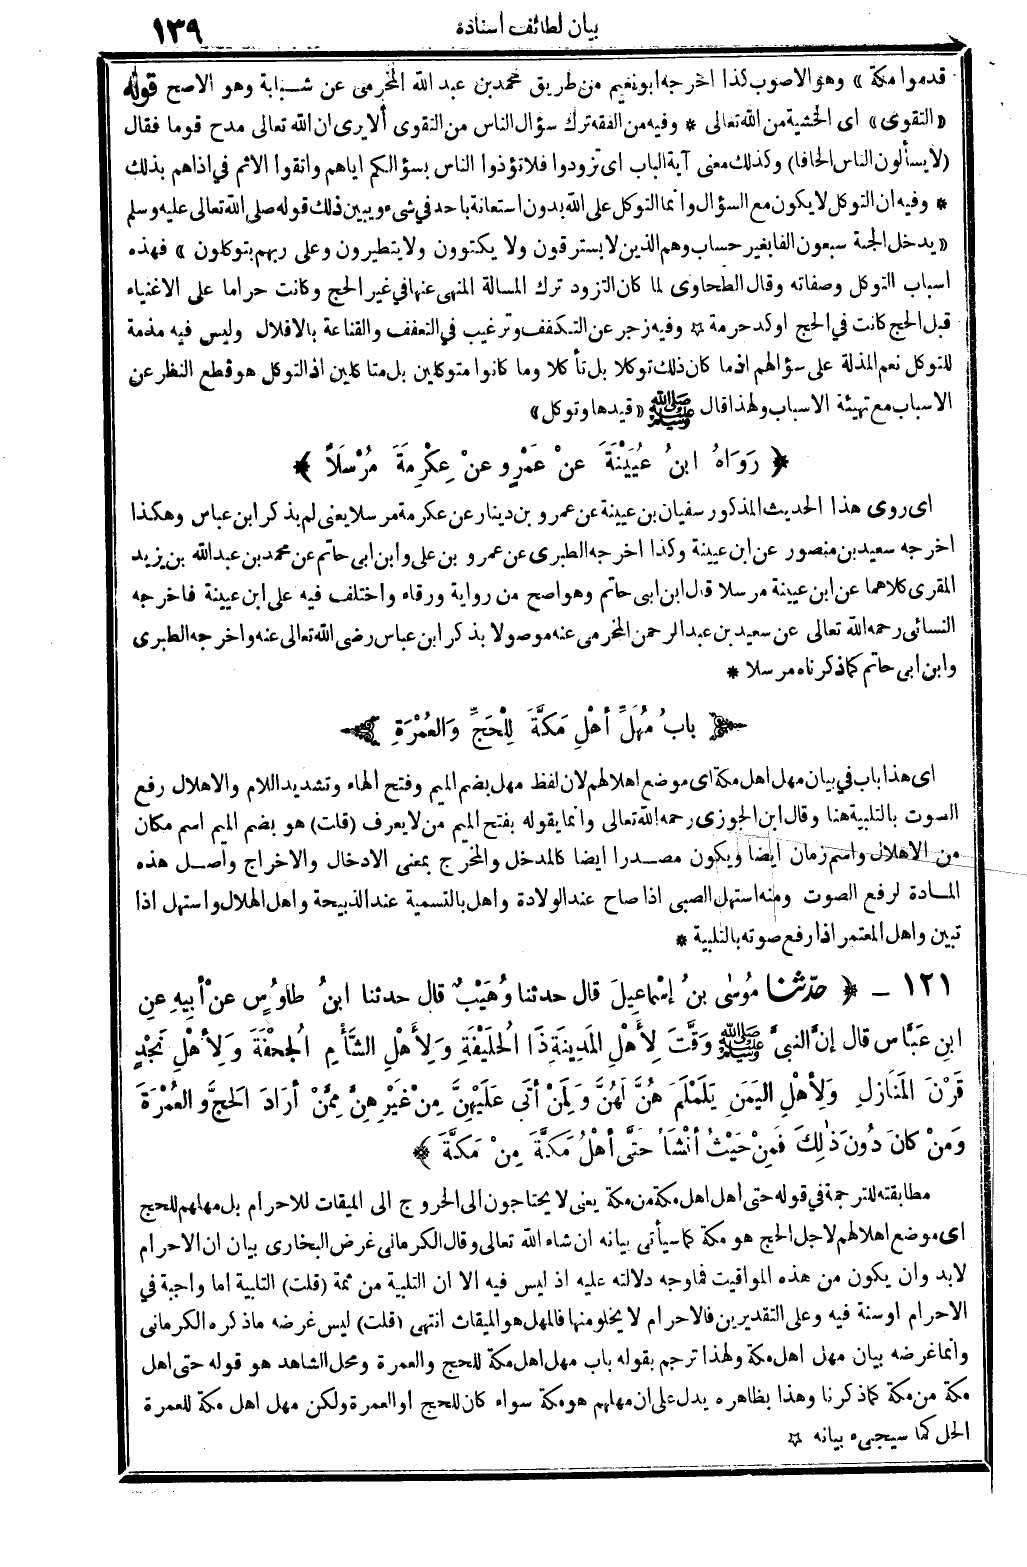 بيان لطائف اسناده
١٣٩
قدموا مكة» وهو الاصوب كذا اخرجه ابو نعيم من طريق محمد بن عبد الله المخرمى عن شبابة وهو الاصح قوله
«التقوى» اى الخشية من الله تعالى * وفيه من الفقه ترك سؤال الناس من التقوى ألا يرى ان الله تعالى مدح قوما فقال
(لا يسألون الناس الحافا) وكذلك معنى آية الباب اى تزودوا فلا تؤذوا الناس بسؤالكم اياهم واتقوا الاثم فى اذاهم بذلك
* وفيه ان التوكل لا يكون مع السؤال وانما التوكل على الله بدون استعانة باحد فى شىء ويبين ذلك قوله صلى الله تعالى عليه وسلم
«يدخل الجنة سبعون الفا بغير حساب وهم الذين لا يسترقون ولا يكتوون ولا يتطيرون وعلى ربهم يتوكلون» فهذه
اسباب التوكل وصفاته وقال الطحاوى لما كان التزود ترك المسالة المنهى عنها فى غير الحج وكانت حراما على الاغنياء
قبل الحج كانت فى الحج اوكد حرمة ☆ وفيه زجر عن التكفف وترغيب فى التعفف والقناعة بالاقلال وليس فيه مذمة
للتوكل نعم المذلة على سؤالهم اذ ما كان ذلك توكلا بل تأكلا وما كانوا متوكلين بل متاكلين اذ التوكل هو قطع النظر عن
الاسباب مع تهيئة الاسباب ولهذا قال ﷺ «قيدها وتوكل»
﴿ رَوَاهُ ابنُ عُيَيْنَةَ عنْ عَمْرٍو عنْ عِكْرِمَةَ مُرْسَلاً ﴾
اى روى هذا الحديث المذكور سفيان بن عيينة عن عمرو بن دينار عن عكرمة مرسلا يعنى لم يذكر ابن عباس وهكذا
اخرجه سعيد بن منصور عن ابن عيينة وكذا اخرجه الطبرى عن عمرو بن على وابن ابى حاتم عن محمد بن عبد الله بن يزيد
المقرى كلاهما عن ابن عيينة مرسلا قال ابن ابى حاتم وهو اصح من رواية ورقاء واختلف فيه على ابن عيينة فاخرجه
النسائى رحمه الله تعالى عن سعيد بن عبد الرحمن المخرمى عنه موصولا بذكر ابن عباس رضى الله تعالى عنه واخرجه الطبرى
وابن ابى حاتم كما ذكرناه مرسلا *
بابُ مُهَلِّ أهْلِ مَكَّةَ لِلْحَجِّ وَالعُمْرَةِ
اى هذا باب فى بيان مهل اهل مكة اى موضع اهلالهم لان لفظ مهل بضم الميم وفتح الهاء وتشديد اللام والاهلال رفع
الصوت بالتلبية هنا وقال ابن الجوزى رحمه الله تعالى وانما يقوله بفتح الميم من لا يعرف (قلت) هو بضم الميم اسم مكان
من الاهلال واسم زمان ايضا ويكون مصدرا ايضا كالمدخل والمخرج بمعنى الادخال والاخراج واصل هذه
المادة لرفع الصوت ومنه استهل الصبى اذا صاح عند الولادة واهل بالتسمية عند الذبيحة واهل الهلال واستهل اذا
تبين واهل المعتمر اذا رفع صوته بالتلبية *
١٢١ ـ ﴿ حدّثنا مُوسٰى بنُ إسْماعِيلَ قال حدثنا وُهَيْبٌ قال حدثنا ابنُ طاوُسٍ عنْ أبِيهِ عنِ
ابنِ عَبَّاسٍ قال إنَّ النبىَّ ﷺ وَقَّتَ لِأَهْلِ المَدِينَةِ ذَا الحُلَيْفَةِ وَلِأَهْلِ الشَّأْمِ الجُحْفَةَ وَلِأَهْلِ نَجْدٍ
قَرْنَ المَنَازِلِ وَلِأهْلِ اليَمَنِ يَلَمْلَمَ هُنَّ لَهُنَّ وَلِمَنْ أتَى عَلَيْهِنَّ مِنْ غَيْرِهِنَّ مِمَّنْ أرَادَ الحَجَّ والعُمْرَةَ
وَمَنْ كانَ دُونَ ذٰلِكَ فَمِنْ حَيْثُ أنْشَأَ حَتَّى أهْلُ مَكَّةَ مِنْ مَكَّةَ ﴾
مطابقته للترجمة فى قوله حتى اهل اهل مكة من مكة يعنى لا يحتاجون الى الخروج الى الميقات للاحرام بل مهلهم للحج
اى موضع اهلالهم لاجل الحج هو مكة كما سيأتى بيانه ان شاء الله تعالى وقال الكرمانى غرض البخارى بيان ان الاحرام
لا بد وان يكون من هذه المواقيت فما وجه دلالته عليه اذ ليس فيه الا ان التلبية من ثمة (قلت) التلبية اما واجبة فى
الاحرام او سنة فيه وعلى التقديرين فالاحرام لا يخلو منها فالمهل هو الميقات انتهى (قلت) ليس غرضه ما ذكره الكرمانى
وانما غرضه بيان مهل اهل مكة ولهذا ترجم بقوله باب مهل اهل مكة للحج والعمرة ومحل الشاهد هو قوله حتى اهل
مكة من مكة كما ذكرنا وهذا بظاهره يدل على ان مهلهم هو مكة سواء كان للحج او العمرة ولكن مهل اهل مكة للعمرة
الحل كما سيجىء بيانه ☆